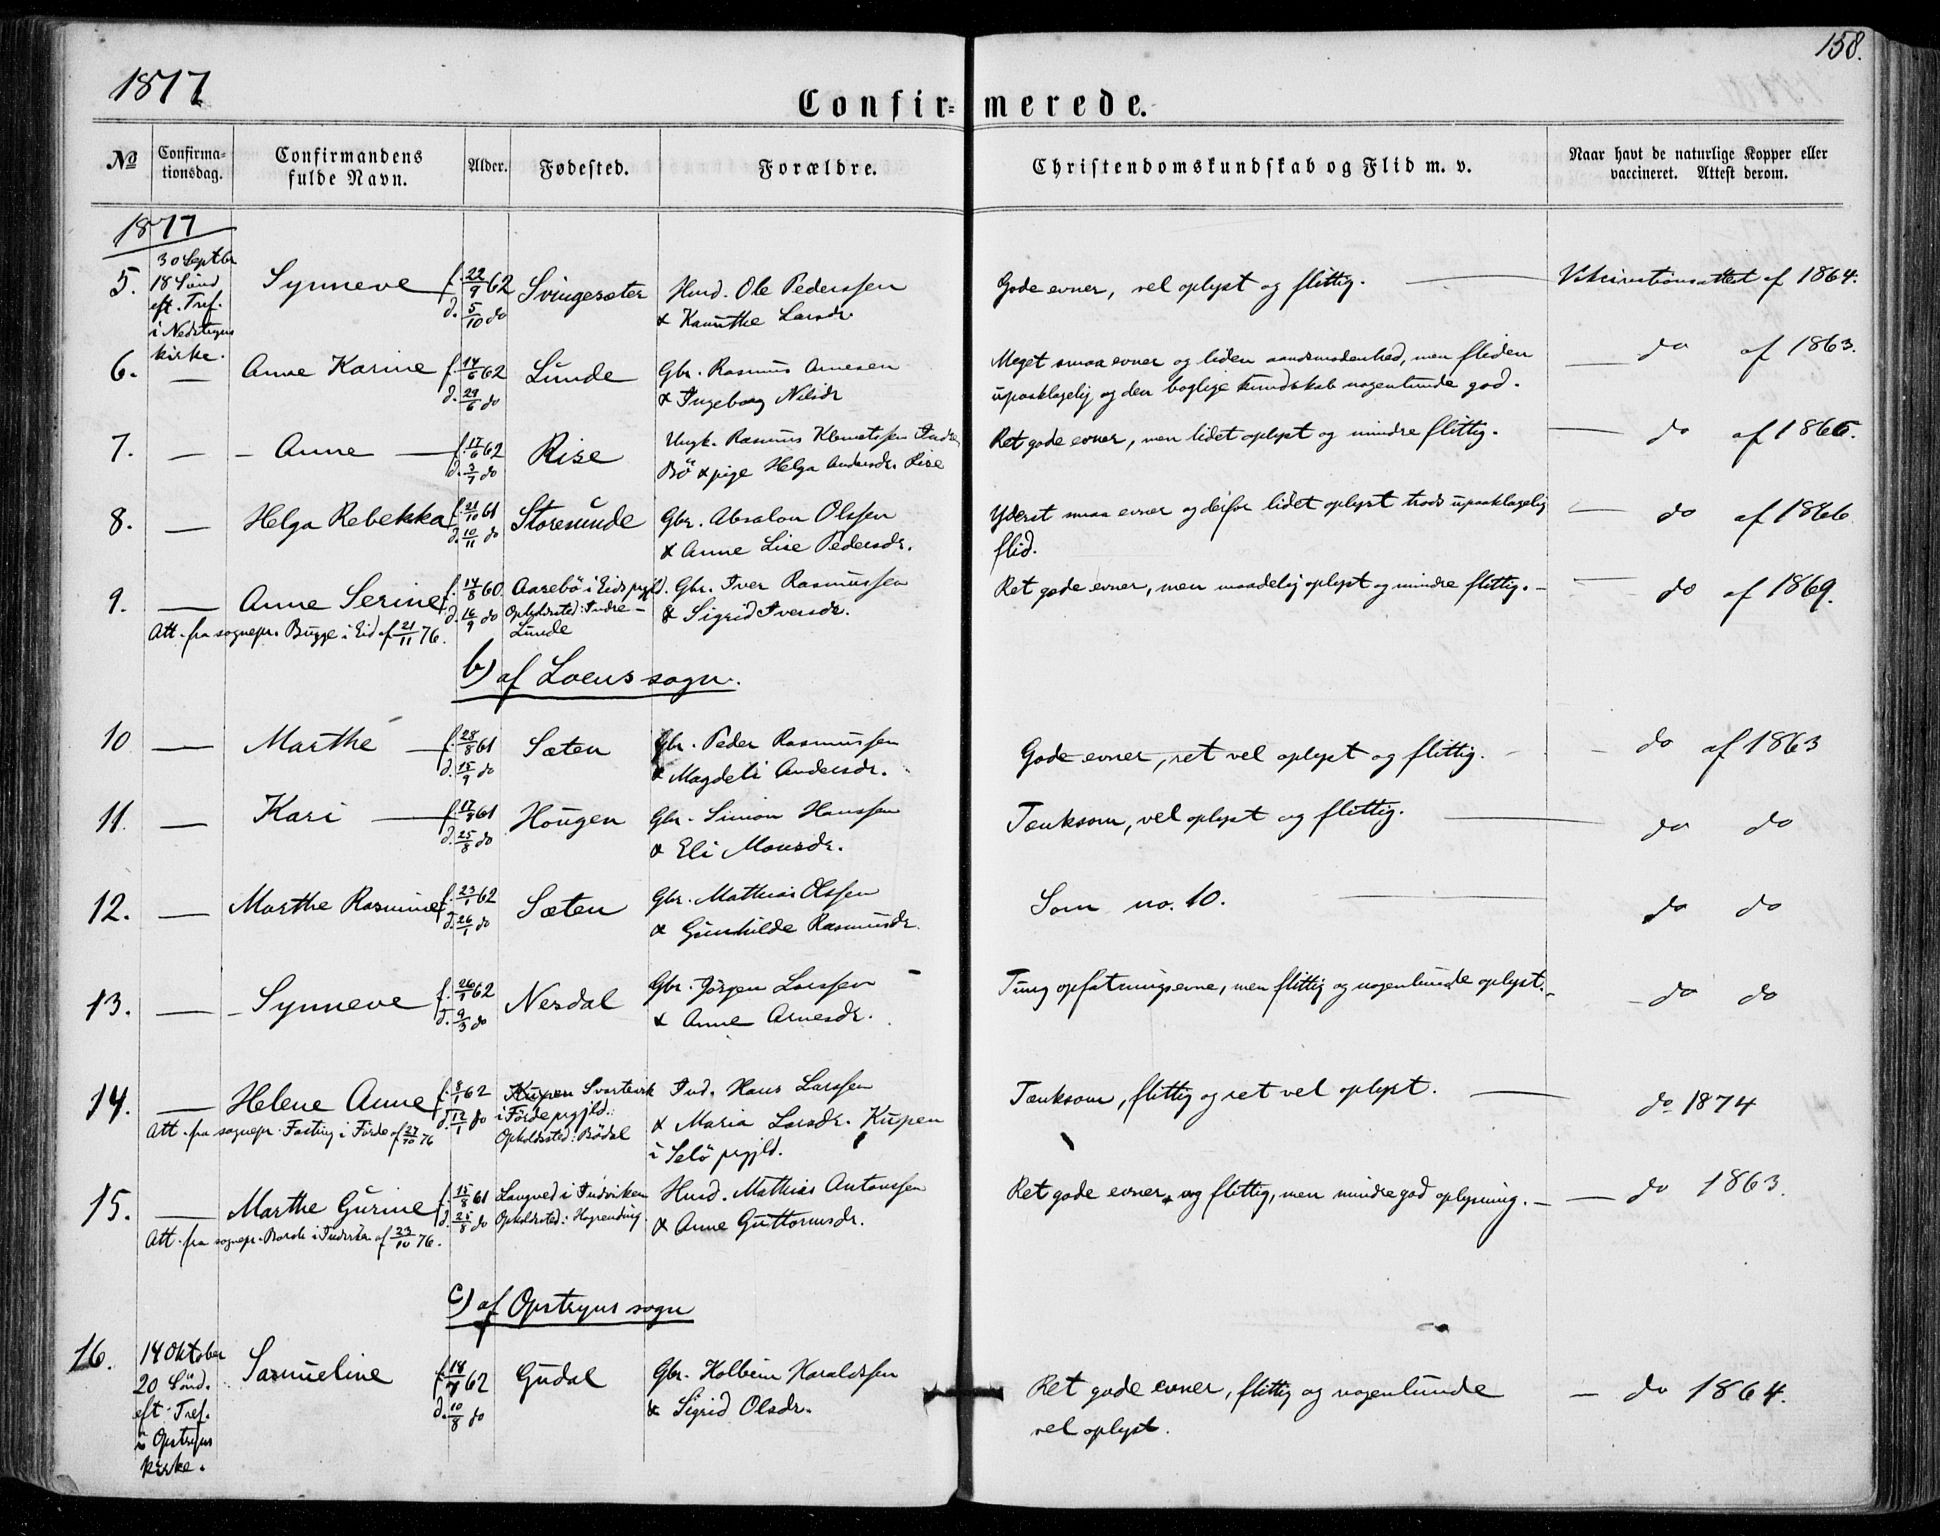 158.
1877
Confirmerede.
No
Confirmationsdag.
Confirmandens fulde Navn.
Alder.
Fødested.
Forældre.
Christendomskundskab og Flid m. v.
Naar havt de naturlige Kopper eller vaccineret. Attest derom.
1877
5. 30 Septbr 18 Sönd eft. Tref. i Nedstryns kirke. Synneve f. 22/9 62 d. 5/10 do Svingesæter Husd. Ole Pederssen & Kanuthe Larsdr. Gode evner, vel oplyst og flittig. Vakcinationsattest af 1864.
6. — Anne Karine f. 14/6 62 d. 29/6 do Lunde Gbr. Rasmus Arnesen & Ingeborg Nilsdr Meget smaa evner og liden aandsmodenhed, men fliden
upaaklagelig og den boglige kundskab nogenlunde god. do af 1863.
7. — Anne f. 17/6 62 d. 3/7 do Rise Ungk. Rasmus Klemetssen Indre
Bö & pige Helga Andersdr. Rise Ret gode evner, men lidet oplyst og mindre flittig. — do af 1865.
8. — Helga Rebekka f. 21/10 61 d. 10/11 do Storesunde Gbr. Absalon Olssen
& Anne Lise Pedersdr. Yderst smaa evner og derfor lidet oplyst trods upaaklagelig
flid. — do af 1866
9. — Anne Serine f. 14/8 60 d. 16/9 do Aarebö i Eids prgjld. Opholdssted: Indre-
Lunde Gbr. Iver Rasmussen
& Sigrid Iversdr. Ret gode evner, men maadelig oplyst og mindre flittig. — do af 1869.
Att. fra sognepr. Bugge i Eid af 21/11 76.
b) af Loens sogn.
10 — Marthe f. 28/8 61 d. 15/9 do Sæten Gbr. Peder Rasmussen
& Magdeli Andersdr. Gode evner, ret vel oplyst og flittig. — do af 1863
11. — Kari f. 17/8 61 d. 25/8 do Hougen Gbr. Simon Hanssen
& Eli Monsdr. Tænksom, vel oplyst og flittig. do do
12. — Marthe Rasmine f. 23/1 62 d. 26/1 do Sæten Gbr. Mathias Olssen
& Gunhilde Rasmusdr. Som no. 10. do do
13. — Synneve f. 26/1 62 d. 9/3 do Nesdal Gbr. Jörgen Larssen
& Anne Arnesdr. Tung opfatningsevne, men flittig og nogenlunde oplyst. — do do
14. — Helene Anne f. 8/1 62 d. 12/1 do Svartevik
i Förde prgjld.
Opholdssted: Bödal Ind. Hans Larssen
& Maria Larsdr. Kupen
i Selö prgjld. Tænksom, flittig og ret vel oplyst. — do 1874
Att. fra sognepr. Fasting i Förde af 27/10 76
15. — Marthe Gurine f. 15/8 61 d. 25/8 do Langved i Indviken
Opholdssted: Husd. Mathias Antonssen
& Anne Guttormsdr. Ret gode evner og flittig, men mindre god oplysning. — do 1863.
Att. fra sognepr. i Indviken af 23/10 76.
c) af Opstryns sogn
16. 14 Oktober
20 Sönd.
eft. Tref.
i Opstryns
kirke. Samueline f. 18/7 62 d. 10/8 do Gudal Gbr. Kolbein Haraldssen
& Sigrid Olsdr. Ret gode evner, flittig og nogenlunde
vel oplyst. — do 1864.